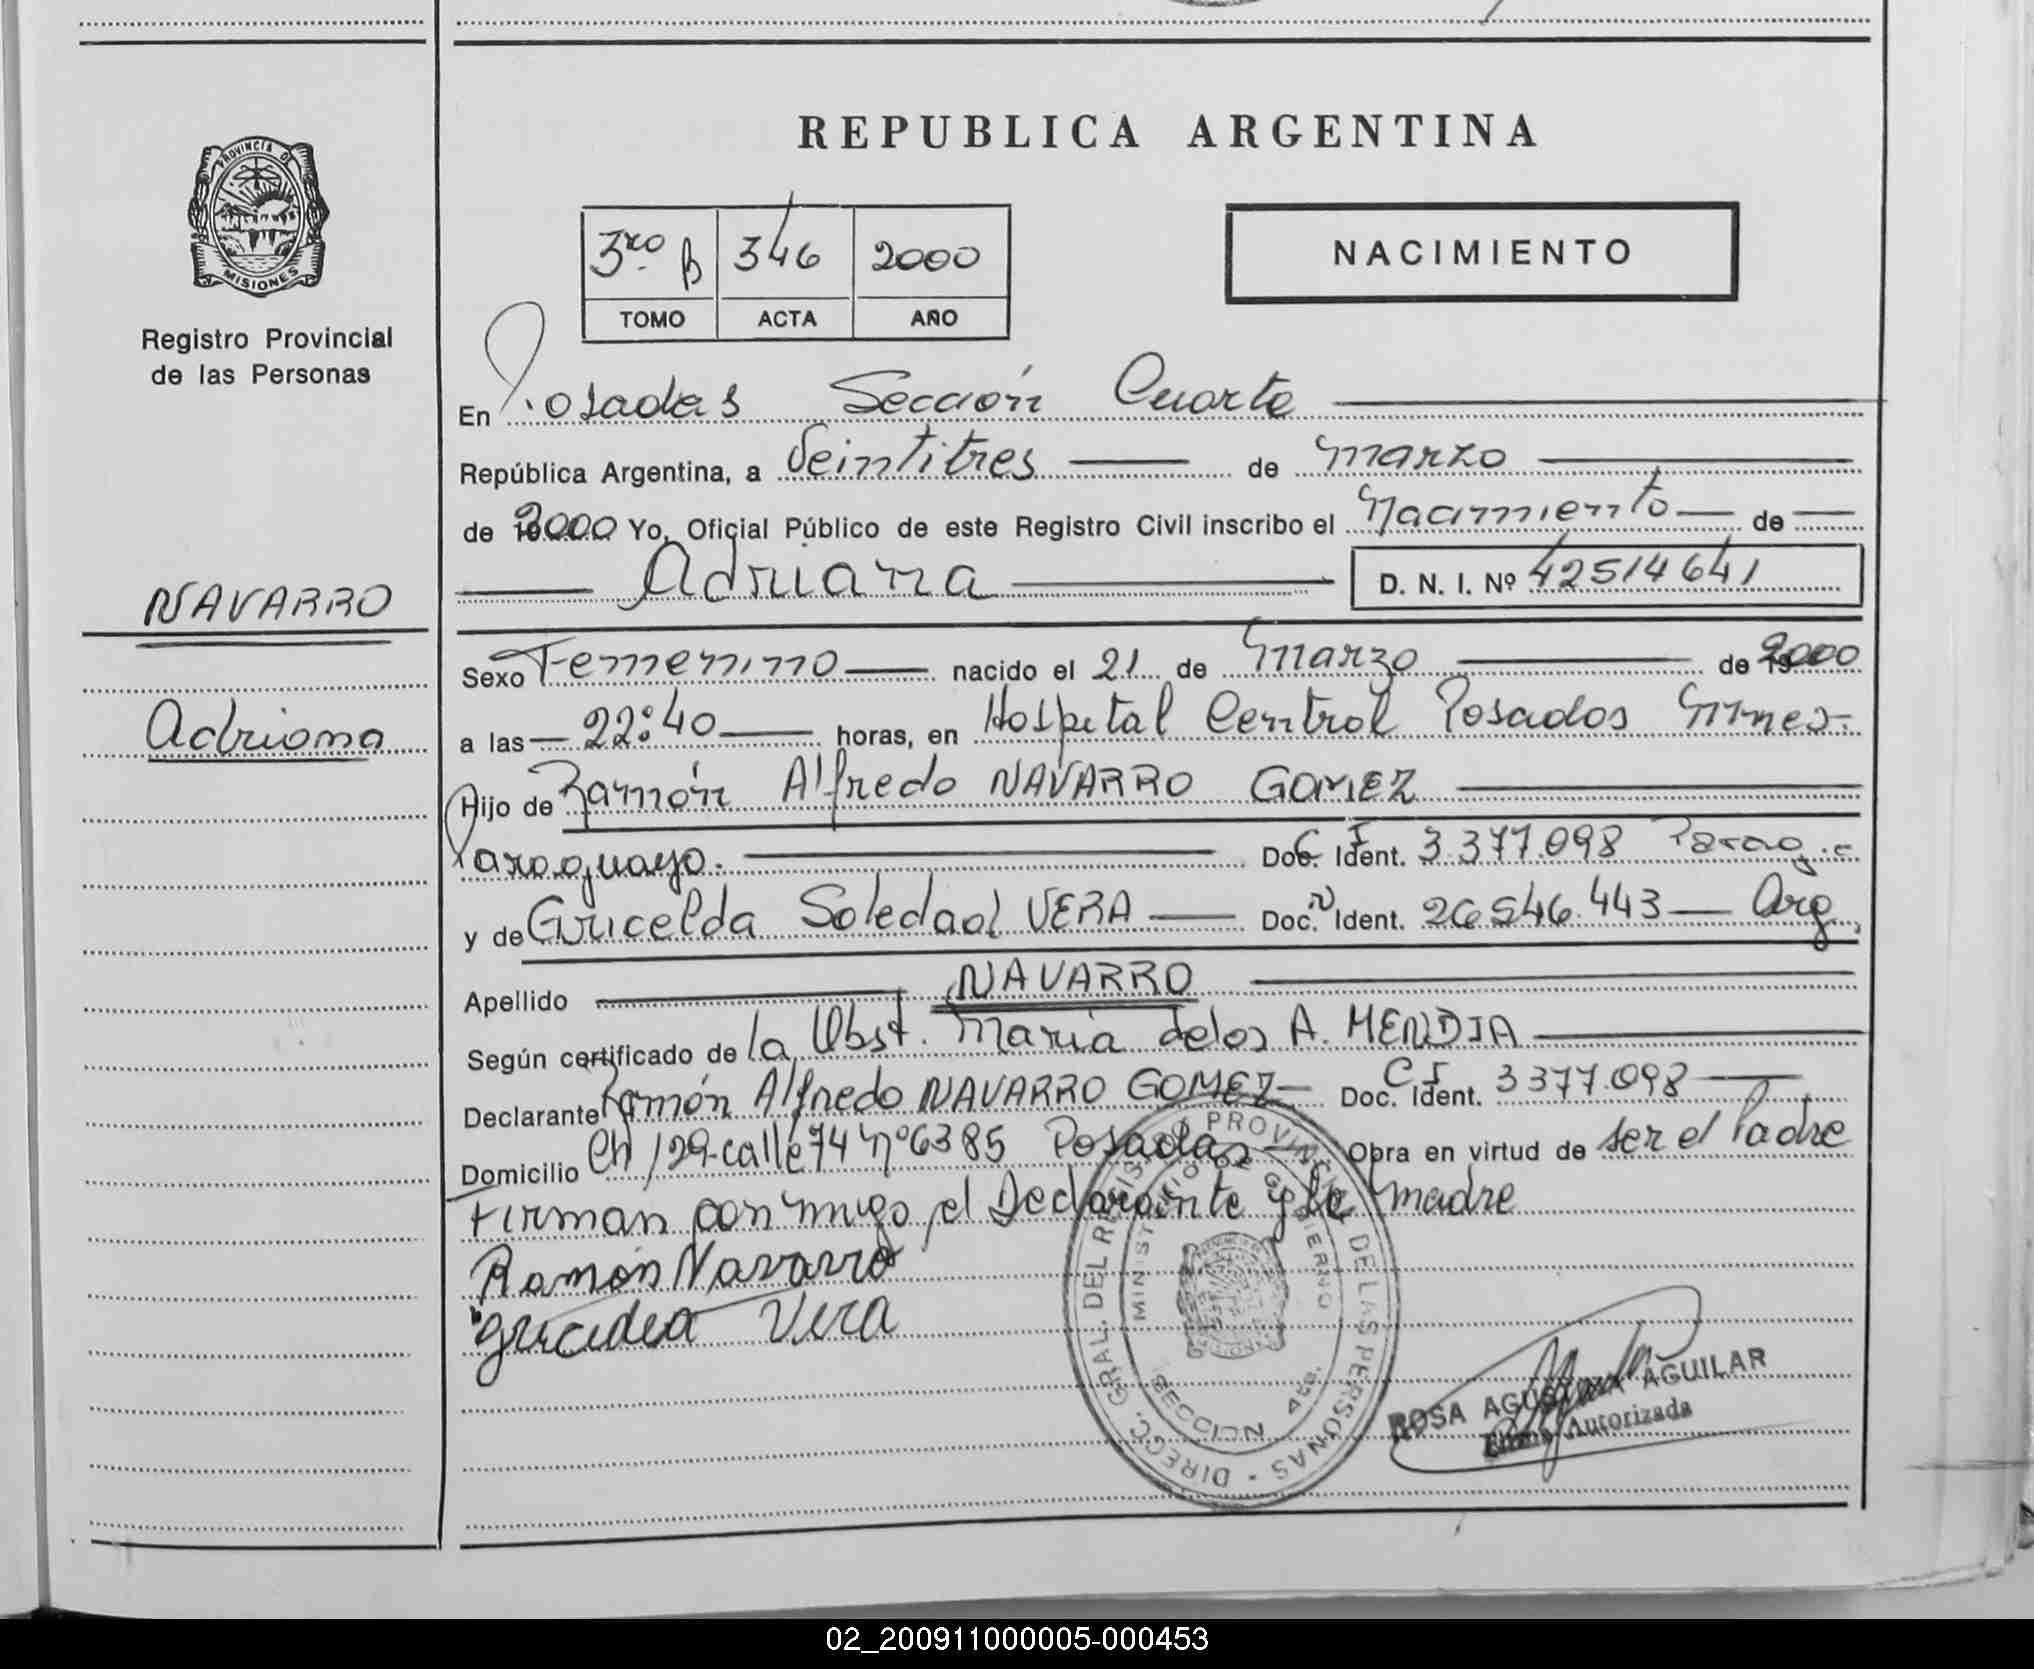 PROVINCIA DE
MISIONES
Registro Provincial
de las Personas
NAVARRO
Adriana
REPUBLICA ARGENTINA
3ro. B 346 2000
TOMO ACTA AÑO
NACIMIENTO
En Posadas Sección Cuarta
República Argentina, a Veintitres de Marzo
de 2000 Yo, Oficial Público de este Registro Civil inscribo el Nacimiento de
Adriana D. N. I. Nº 42514641
Sexo Femenino nacido el 21 de Marzo de 2000
a las 22:40 horas, en Hospital Central Posadas Mnes.
Hijo de Ramón Alfredo NAVARRO GOMEZ
Paraguayo. Doc. Ident. C I 3.377.098 Parag.
y de Gricelda Soledad VERA Doc. N Ident. 26546.443 Arg.
Apellido NAVARRO
Según certificado de la Obst. Maria delos A. MENDIA
Declarante Ramón Alfredo NAVARRO GOMEZ Doc. Ident. C I 3377.098
Domicilio Ch 129-calle 74 Nº 6385 Posadas Obra en virtud de ser el Padre
Firman conmigo el Declarante y la madre
Ramón Navarro
Gricelda Vera
DIRECC. GRAL. DEL REGISTRO PROVINCIAL DE LAS PERSONAS
MINISTERIO DE GOBIERNO
SECCION 4ta.
ROSA AGUSTINA AGUILAR
Firma Autorizada
02_200911000005-000453